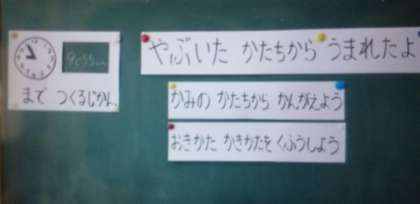 9じ55ふん
まで つくるじかん
やぶいた かたちから うまれたよ
かみの かたちから かんがえよう
おきかた かきかたを くふうしよう